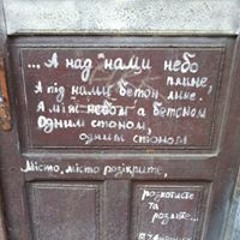 ... А над нами небо
плине,
А під нами бетон лине.
А між небом а бетоном
Одним стоном,
одним стоном
Місто, місто розкрите,
розколисте
та
розлите...